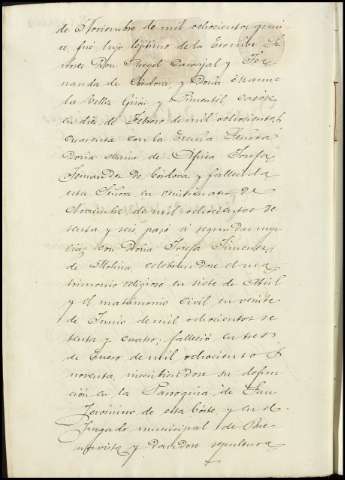 de Noviembre de mil ochocientos quin
ce fué hijo legitimo de los Excmos Se
ñores Don Angel Carvajal y Fer
nandez de Cordova y Doña Manue
la Tellez Giron y Pimentel casose
en dias de Febrero de mil ochocientos
cuarenta con la Excma Señora
Doña Maria de Africa Josefa
Fernandez de Cordova y fallecida
esta Señora en veintinueve de
Noviembre de mil ochocientos se
senta y seis pasó á segundas nup
cias con Doña Josefa Jimenez
de Molina celebrandose el ma
trimonio religioso en siete de Abril
y el matrimonio civil en veinte
de Junio de mil ochocientos se
tenta y cuatro, falleció en tres
de Enero de mil ochocientos
noventa, inscribiendose su defun
ción en la Parroquia de San
Jerónimo de esta Corte y en el
Juzgado municipal de Bue
navista y dandose sepultura